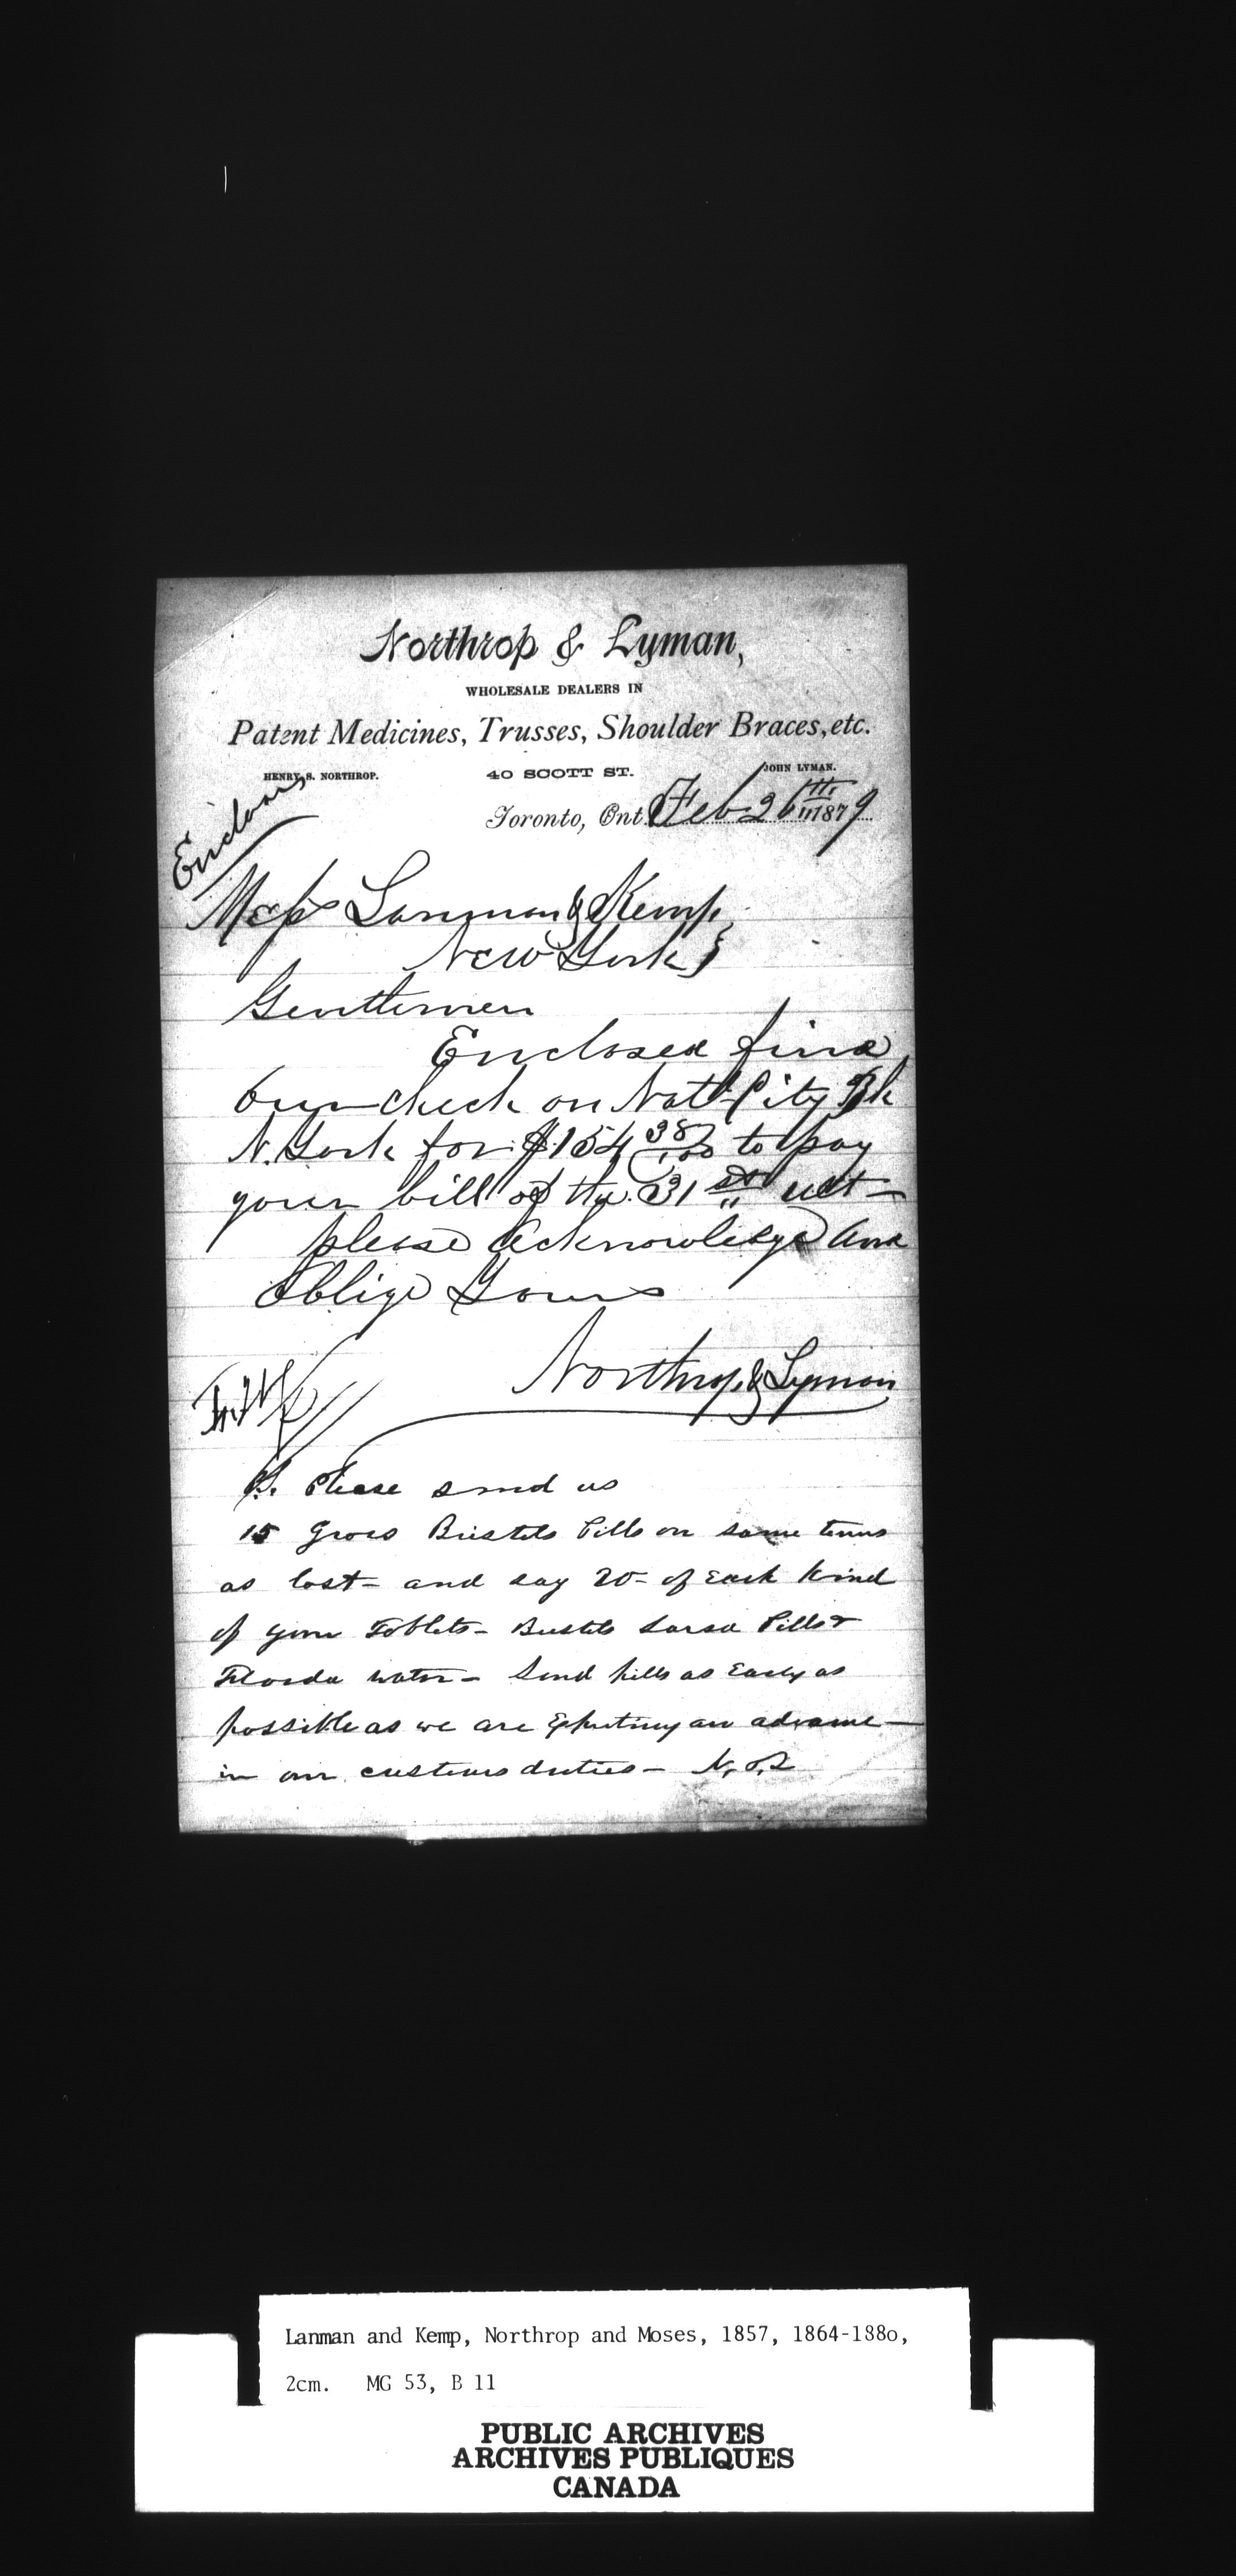 Northrop & Lyman,
WHOLESALE DEALERS IN
Patent Medicines, Trusses, Shoulder Braces, etc.
HENRY S. NORTHROP.
40 SCOTT ST.
JOHN LYMAN.
Toronto, Ont. Feb 26th 1879
Messrs Lanman & Kemp
New York
Gentlemen
Enclosed find
our check on Natl City Bk
N. York for $154 38/100 to pay
your bill of the 31st ult -
please acknowledge and
Oblige Yours
Northrop & Lyman
P.S. Please send us
15 Gross Bristols Pills on same terms
as last - and say 20 - of Each Kind
of your Tablets - Bristols Sarsa Pills &
Florida water - Send pills as Early as
possible as we are Expecting an advance -
in our customs duties - N. & L
Lanman and Kemp, Northrop and Moses, 1857, 1864-188o,
2cm. MG 53, B 11
PUBLIC ARCHIVES
ARCHIVES PUBLIQUES
CANADA